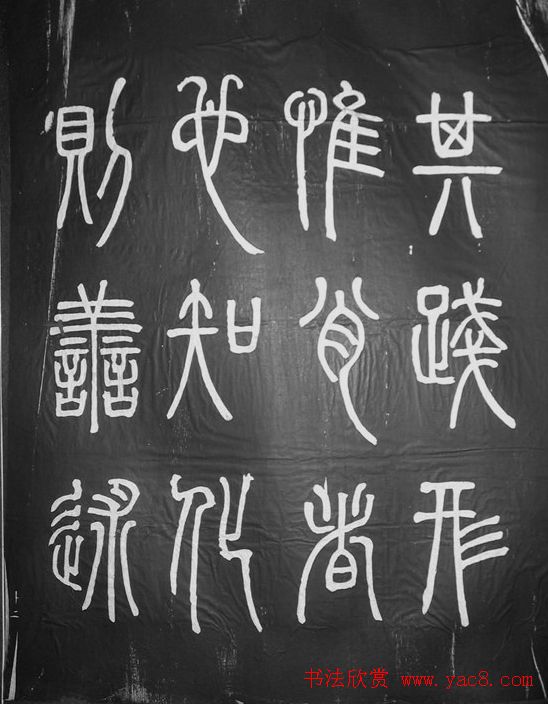 其踐形
惟肖者
也知化
則善述
书法欣赏 www.yac8.com